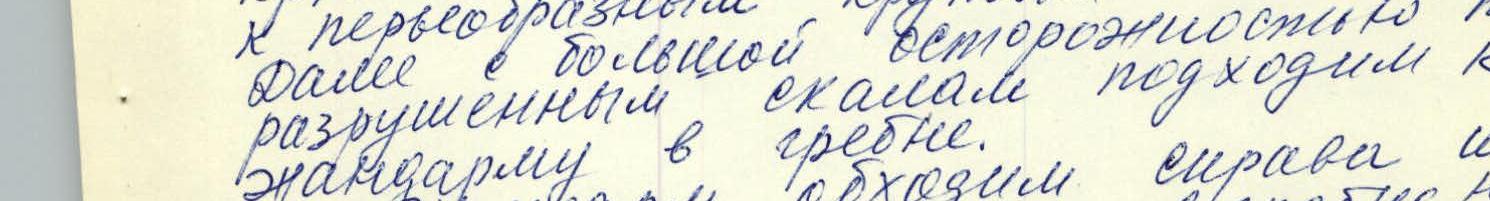 к перьеобразным
Далее с большой осторожностью
разрушенным скалам подходим к
жандарму в гребне.
обходим справа и